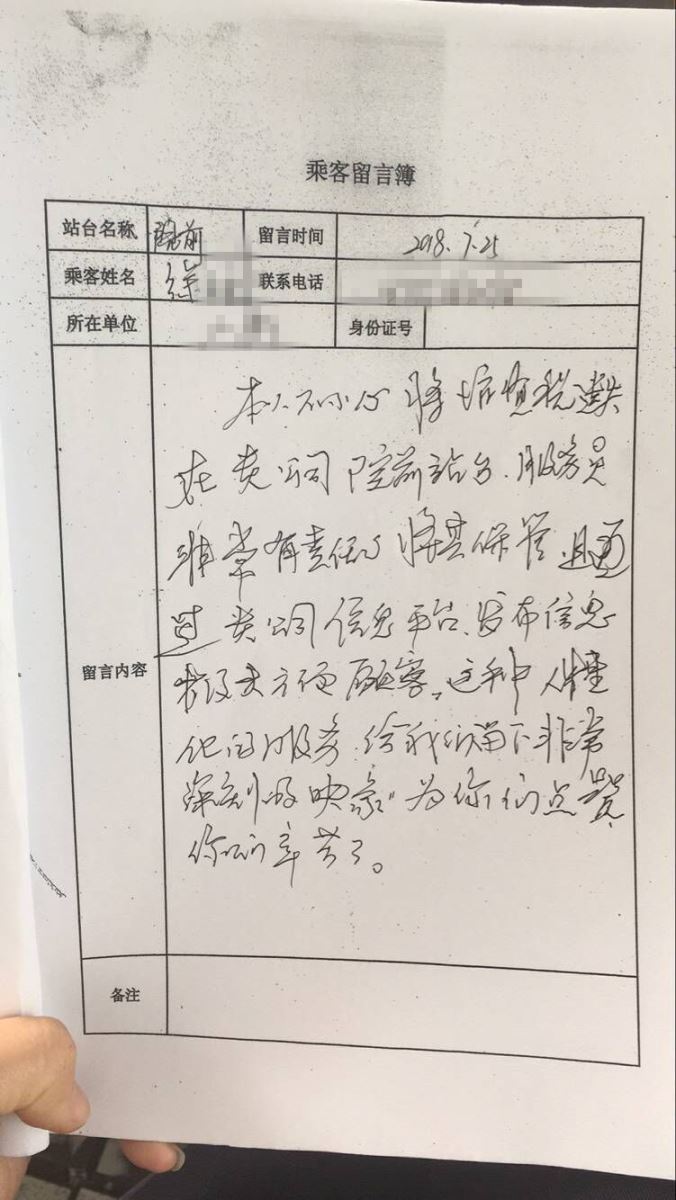 乘客留言簿
站台名称 院前 留言时间 2018.7.25
乘客姓名 徐 联系电话
所在单位 身份证号
留言内容
本人不小心将 遗失
在贵公司院前站台,服务员
非常有责任心将其保管,且通
过贵公司信息平台,发布信息
方便顾客,这种人性
化的服务,给我们留下非常
深刻的映象,为你们点赞,
你们辛苦了。
备注